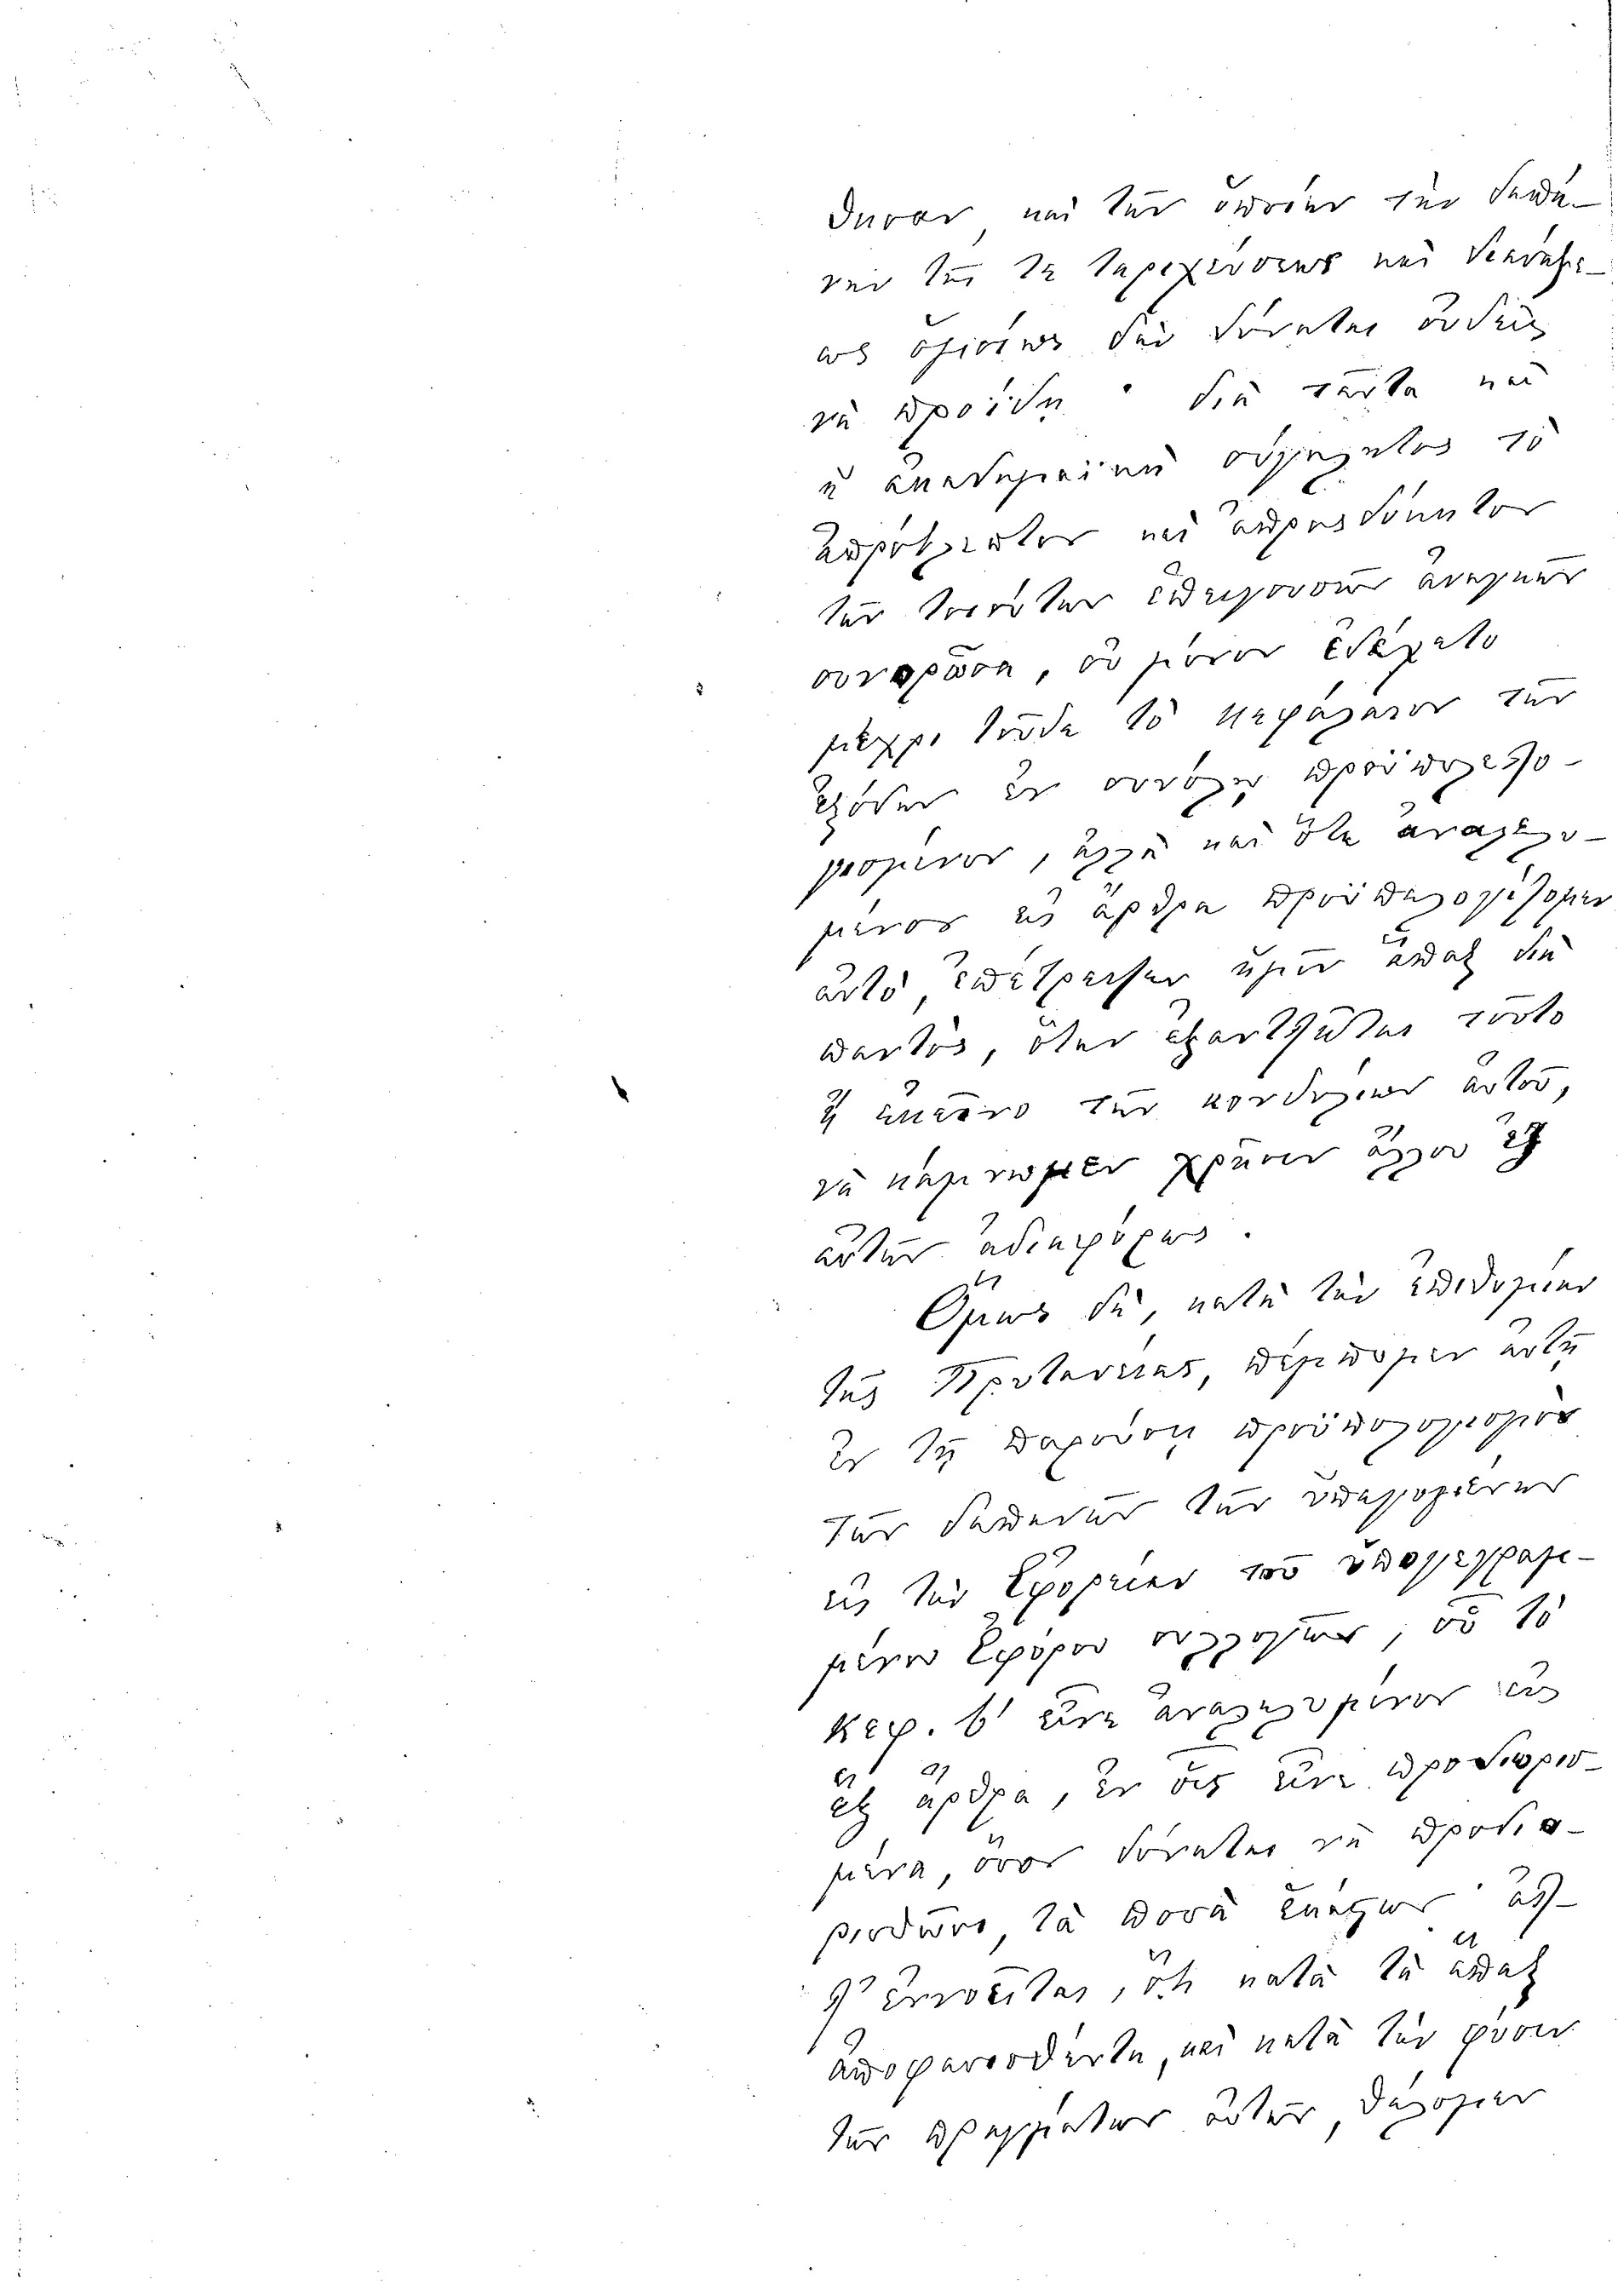 θησαν, καὶ τῶν ὁποίων τὴν δαπά-
νην τῆς τε ταριχεύσεως καὶ διανομῆ-
ως ὁρισίως δὲν δύναται οὐδεὶς
νὰ προΐδῃ· διὰ ταῦτα καὶ
ἡ ἀκαδημαϊκὴ σύγκλητος τὸ
ἀπρόβλεπτον καὶ ἀπροσδόκητον
τῶν τοιούτων ἐπειγουσῶν ἀναγκῶν
συνορῶσα, οὐ μόνον ἐδέχετο
μέχρι τοῦδε τὸ κεφάλαιον τῶν
ἐξόδων ἐν συνόλῳ προϋπολελο-
γισμένον, ἀλλὰ καὶ ὅτε ἀναλελυ-
μένον εἰς ἄρθρα προϋπελογίζομεν
αὐτό, ἐπέτρεψεν ἡμῖν ἅπαξ διὰ
παντός, ὅταν ἐξαντλῆται τοῦτο
ἢ ἐκεῖνο τῶν κονδυλίων αὐτοῦ,
νὰ κάμνωμεν χρῆσιν ἄλλου ἐξ
αὐτῶν ἀδιαφόρως.
Ὅμως δέ, κατὰ τὴν ἐπιθυμίαν
τῆς Πρυτανείας, πέμπομεν αὐτῇ
ἐν τῇ παρούσῃ προϋπολογισμὸν
τῶν δαπανῶν τῶν ὑπαγομένων
εἰς τὴν Ἐφορείαν τοῦ ὑπογεγραμ-
μένου Ἐφόρου συλλογῶν, οὗ τὸ
Κεφ. β' εἶνε ἀναλελυμένον εἰς
ἓξ ἄρθρα, ἐν οἷς εἶνε προσδιωρισ-
μένα, ὅσον δύναται νὰ προδια-
ρισθῶσι, τὰ ποσὰ ἑκάστων· ἀλλ'
ἐννοεῖται, ὅτι κατὰ τὰ ἅπαξ
ἀποφασισθέντα, καὶ κατὰ τὴν φύσιν
τῶν πραγμάτων αὐτῶν, θέλομεν